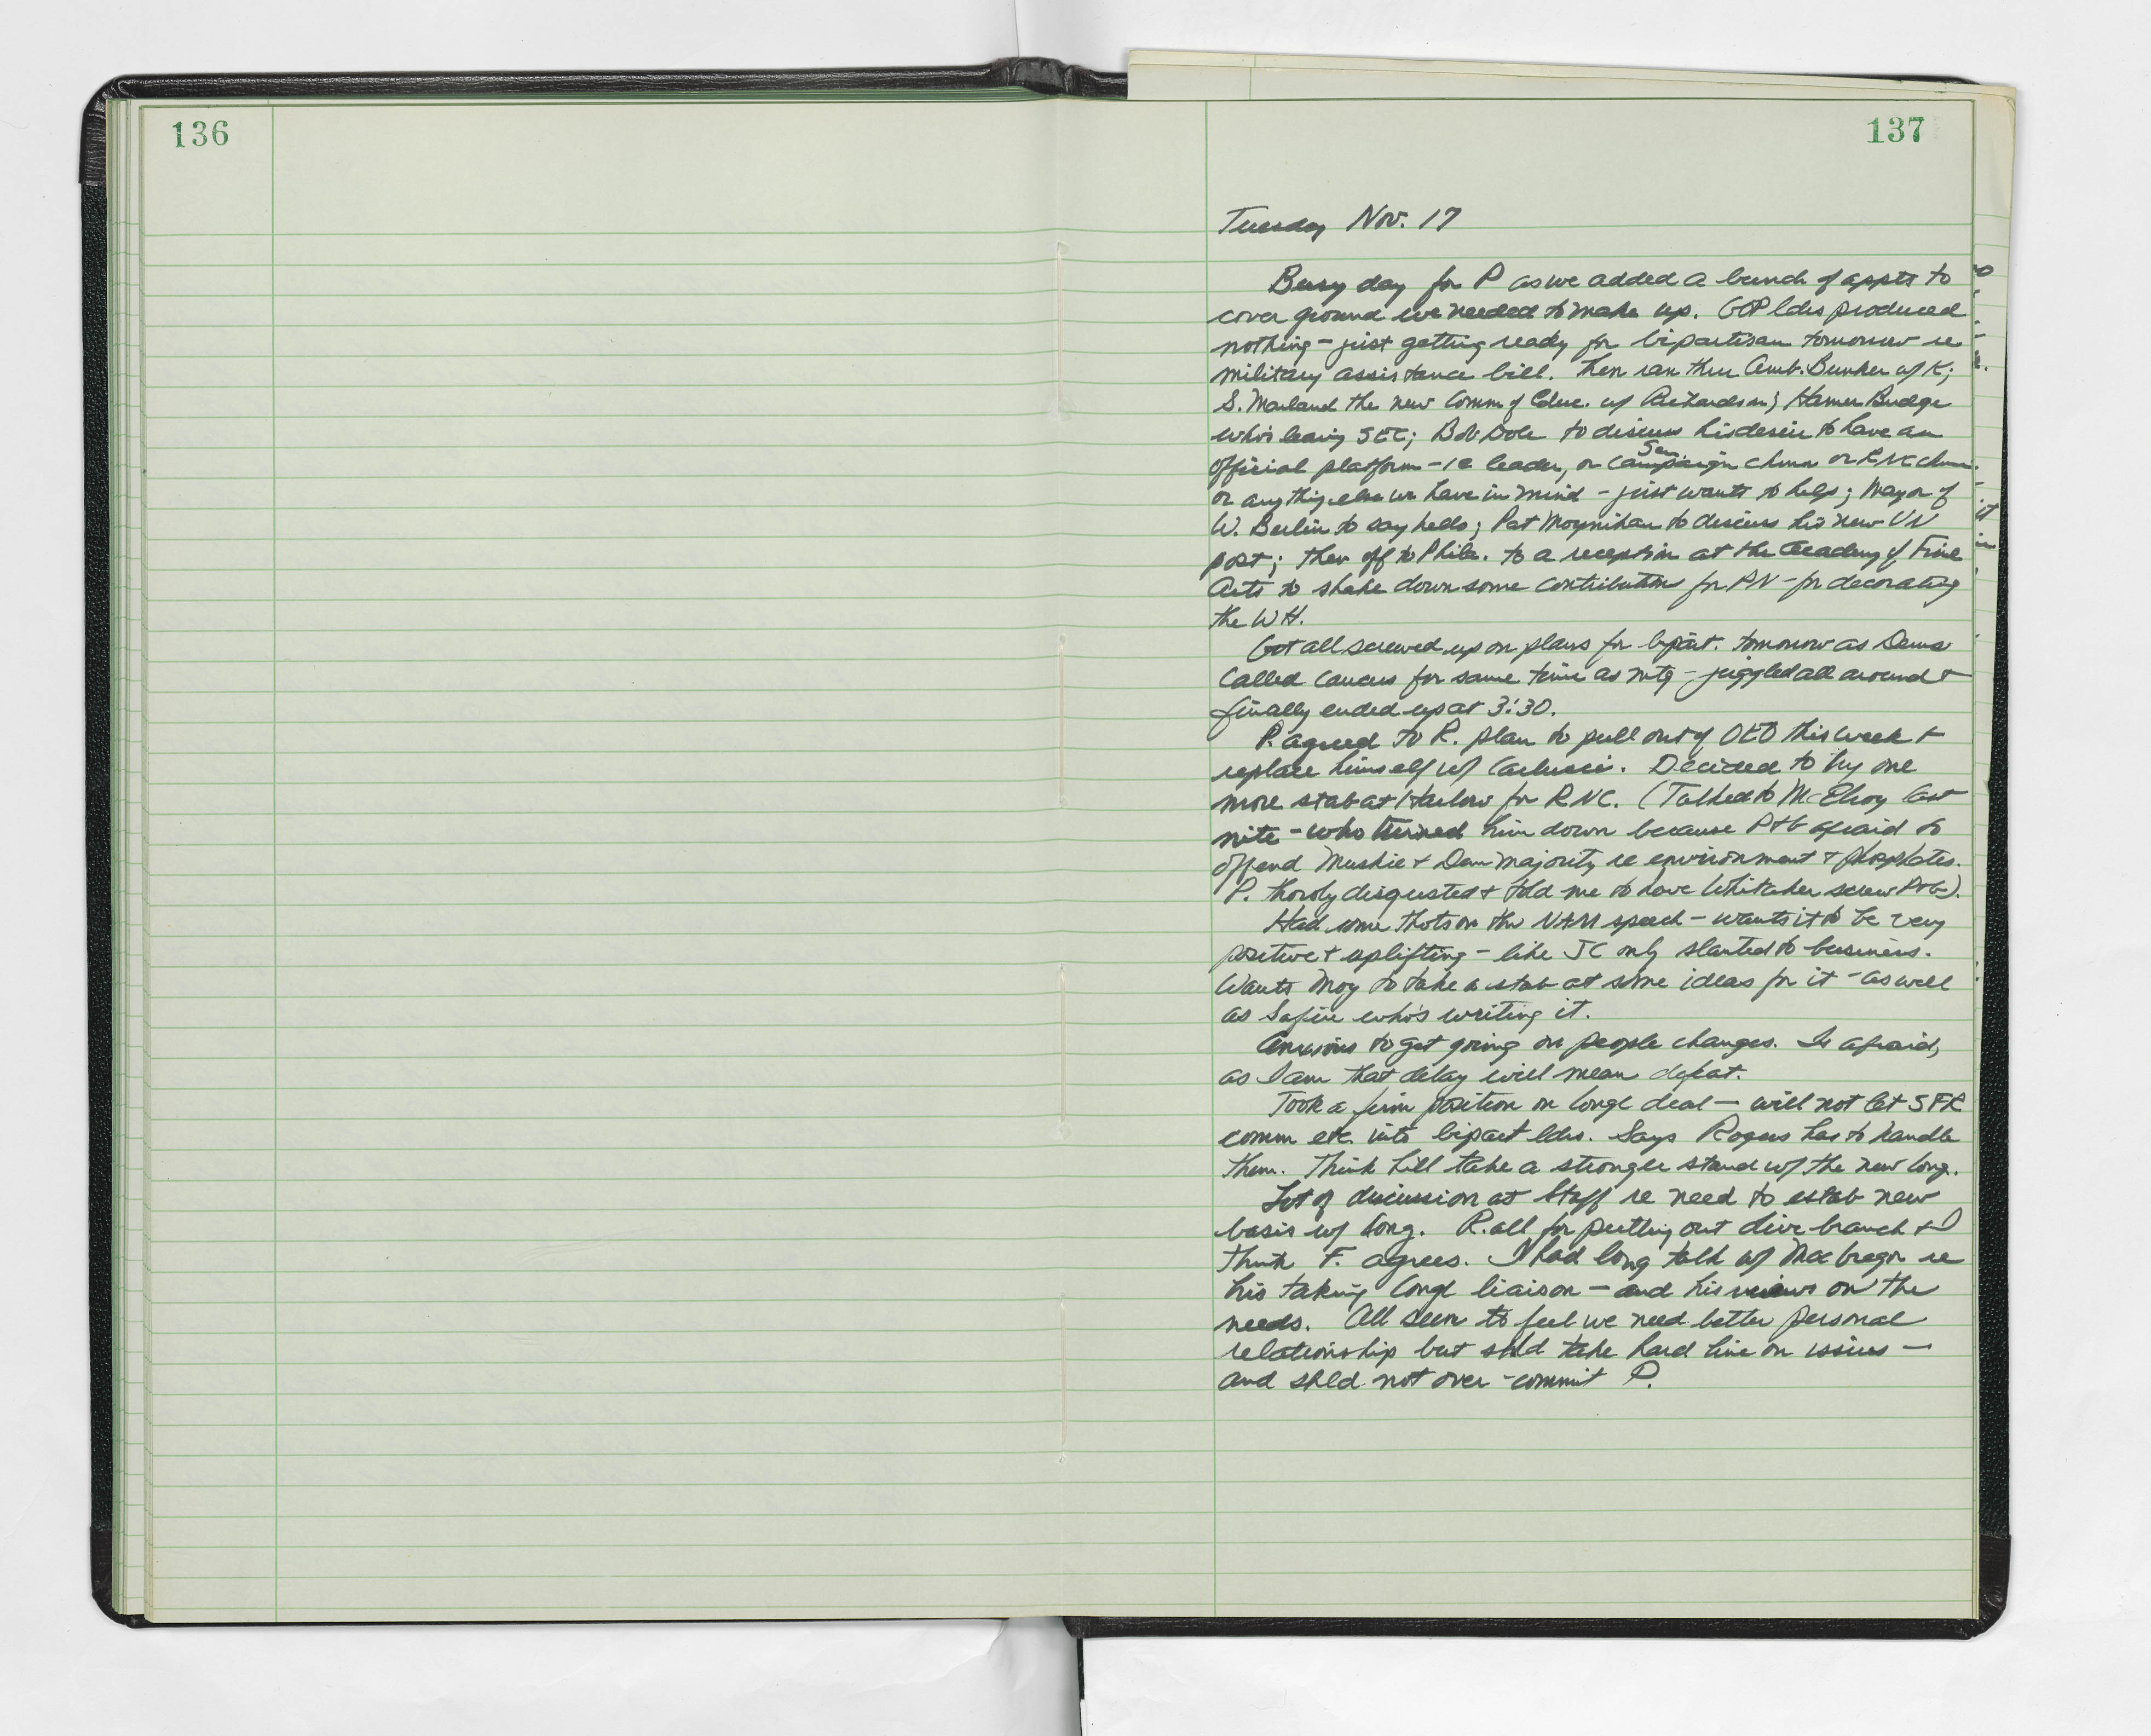 136
137
Tuesday Nov. 17
Busy day for P as we added a bunch of appts to
cover ground we needed to make up. GOP ldrs produced
nothing - just getting ready for bipartisan tomorrow re
military assistance bill. Then ran thru Amb. Bunker w/ K;
S. Marland the new Comm of Educ. w/ Richardson; Hamer Budge
who's leaving SEC; Bob Dole to discuss his desire to have an
Sen
official platform - ie leader, or campaign chmn or RNC chmn.
or anything else we have in mind - just wants to help; Mayor of
W. Berlin to say hello; Pat Moynihan to discuss his new UN
post; then off to Phila. to a reception at the Academy of Fine
Arts to shake down some contributions for PN - for decorating
the WH.
Got all screwed up on plans for bipart. tomorrow as Dems
called caucus for same time as mtg - juggled all around +
finally ended up at 3:30.
P. agreed to R. plan to pull out of OEO this week +
replace himself w/ Carlucci. Decided to try one
more stab at Harlow for RNC. (Talked to McElroy last
nite - who turned him down because P+G afraid to
offend Muskie + Dem majority re environment + phosphates.
P. thoroly disgusted + told me to have Whitaker screw P+G).
Had some thots on the NAM speech - wants it to be very
positive + uplifting - like JC only slanted to business.
Wants Moy to take a stab at some ideas for it - as well
as Safire who's writing it.
Anxious to get going on people changes. Is afraid,
as I am that delay will mean defeat.
Took a firm position on Congl deal - will not let SFR
comm etc. into bipart ldrs. Says Rogers has to handle
them. Think he'll take a stronger stand w/ the new Cong.
Lot of discussion at Staff re need to estab new
basis w/ Cong. R. all for putting out olive branch + I
think F. agrees. I had long talk w/ MacGregor re
his taking Congl liaison - and his views on the
needs. All seem to feel we need better personal
relationship but shld take hard line on issues -
and shld not over-commit P.